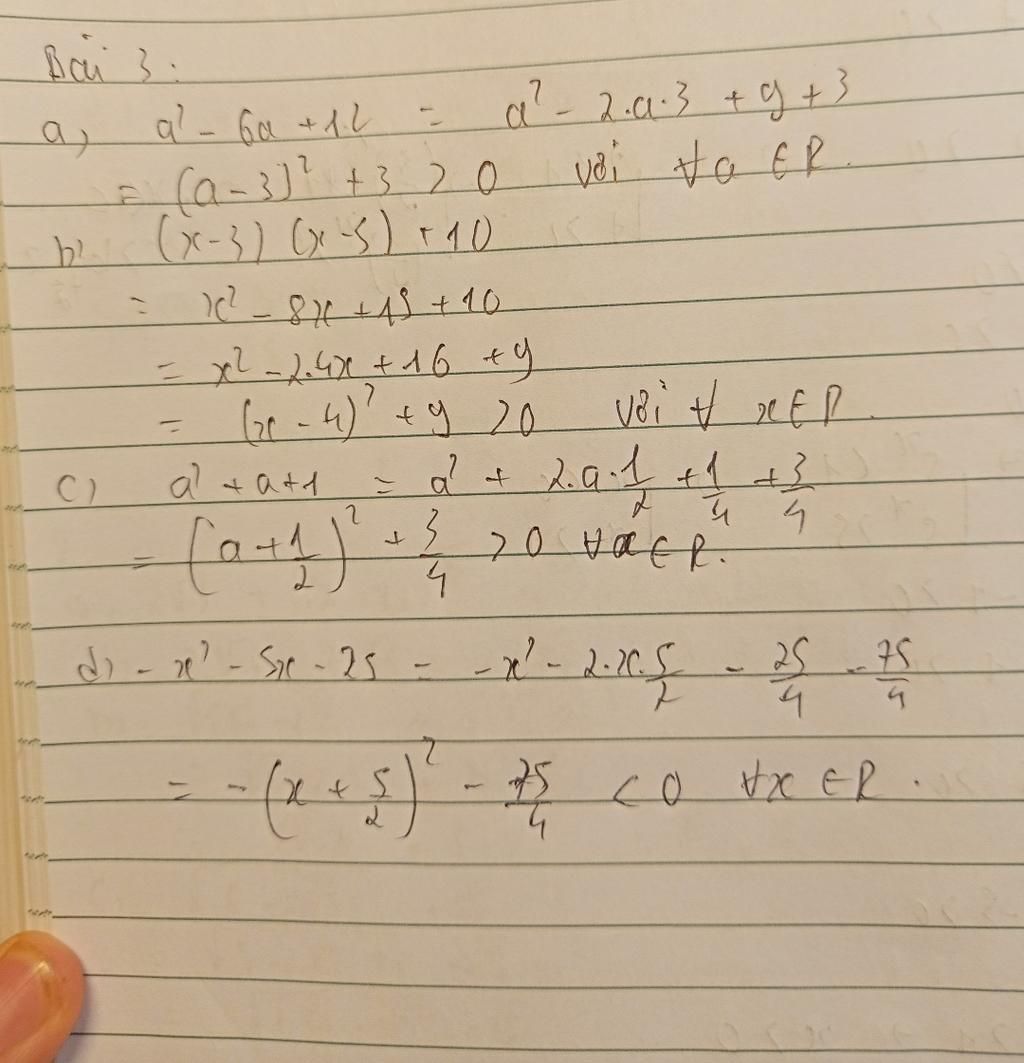 Bài 3:
a) a² - 6a + 12 = a² - 2.a.3 + 9 + 3
= (a-3)² + 3 > 0 với ∀a ∈ R.
b) (x-3) (x-5) + 10
= x² - 8x + 15 + 10
= x² - 2.4x + 16 + 9
= (x - 4)² + 9 > 0 với ∀ x ∈ R.
c) a² + a + 1 = a² + 2.a.1/2 + 1/4 + 3/4
= (a + 1/2)² + 3/4 > 0 ∀a ∈ R.
d) - x² - 5x - 25 = -x² - 2.x.5/2 - 25/4 - 75/4
= - (x + 5/2)² - 75/4 < 0 ∀x ∈ R.